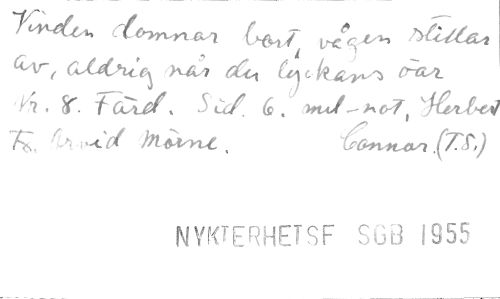 Vinden domnar bort, vågen stillar
av, aldrig når du lyckans öar
Nr. 8. Färd. Sid. 6. mel-not, Herbert
Tx. Arvid Mörne. Connor. (T.S.)
NYKTERHETSF SGB 1955